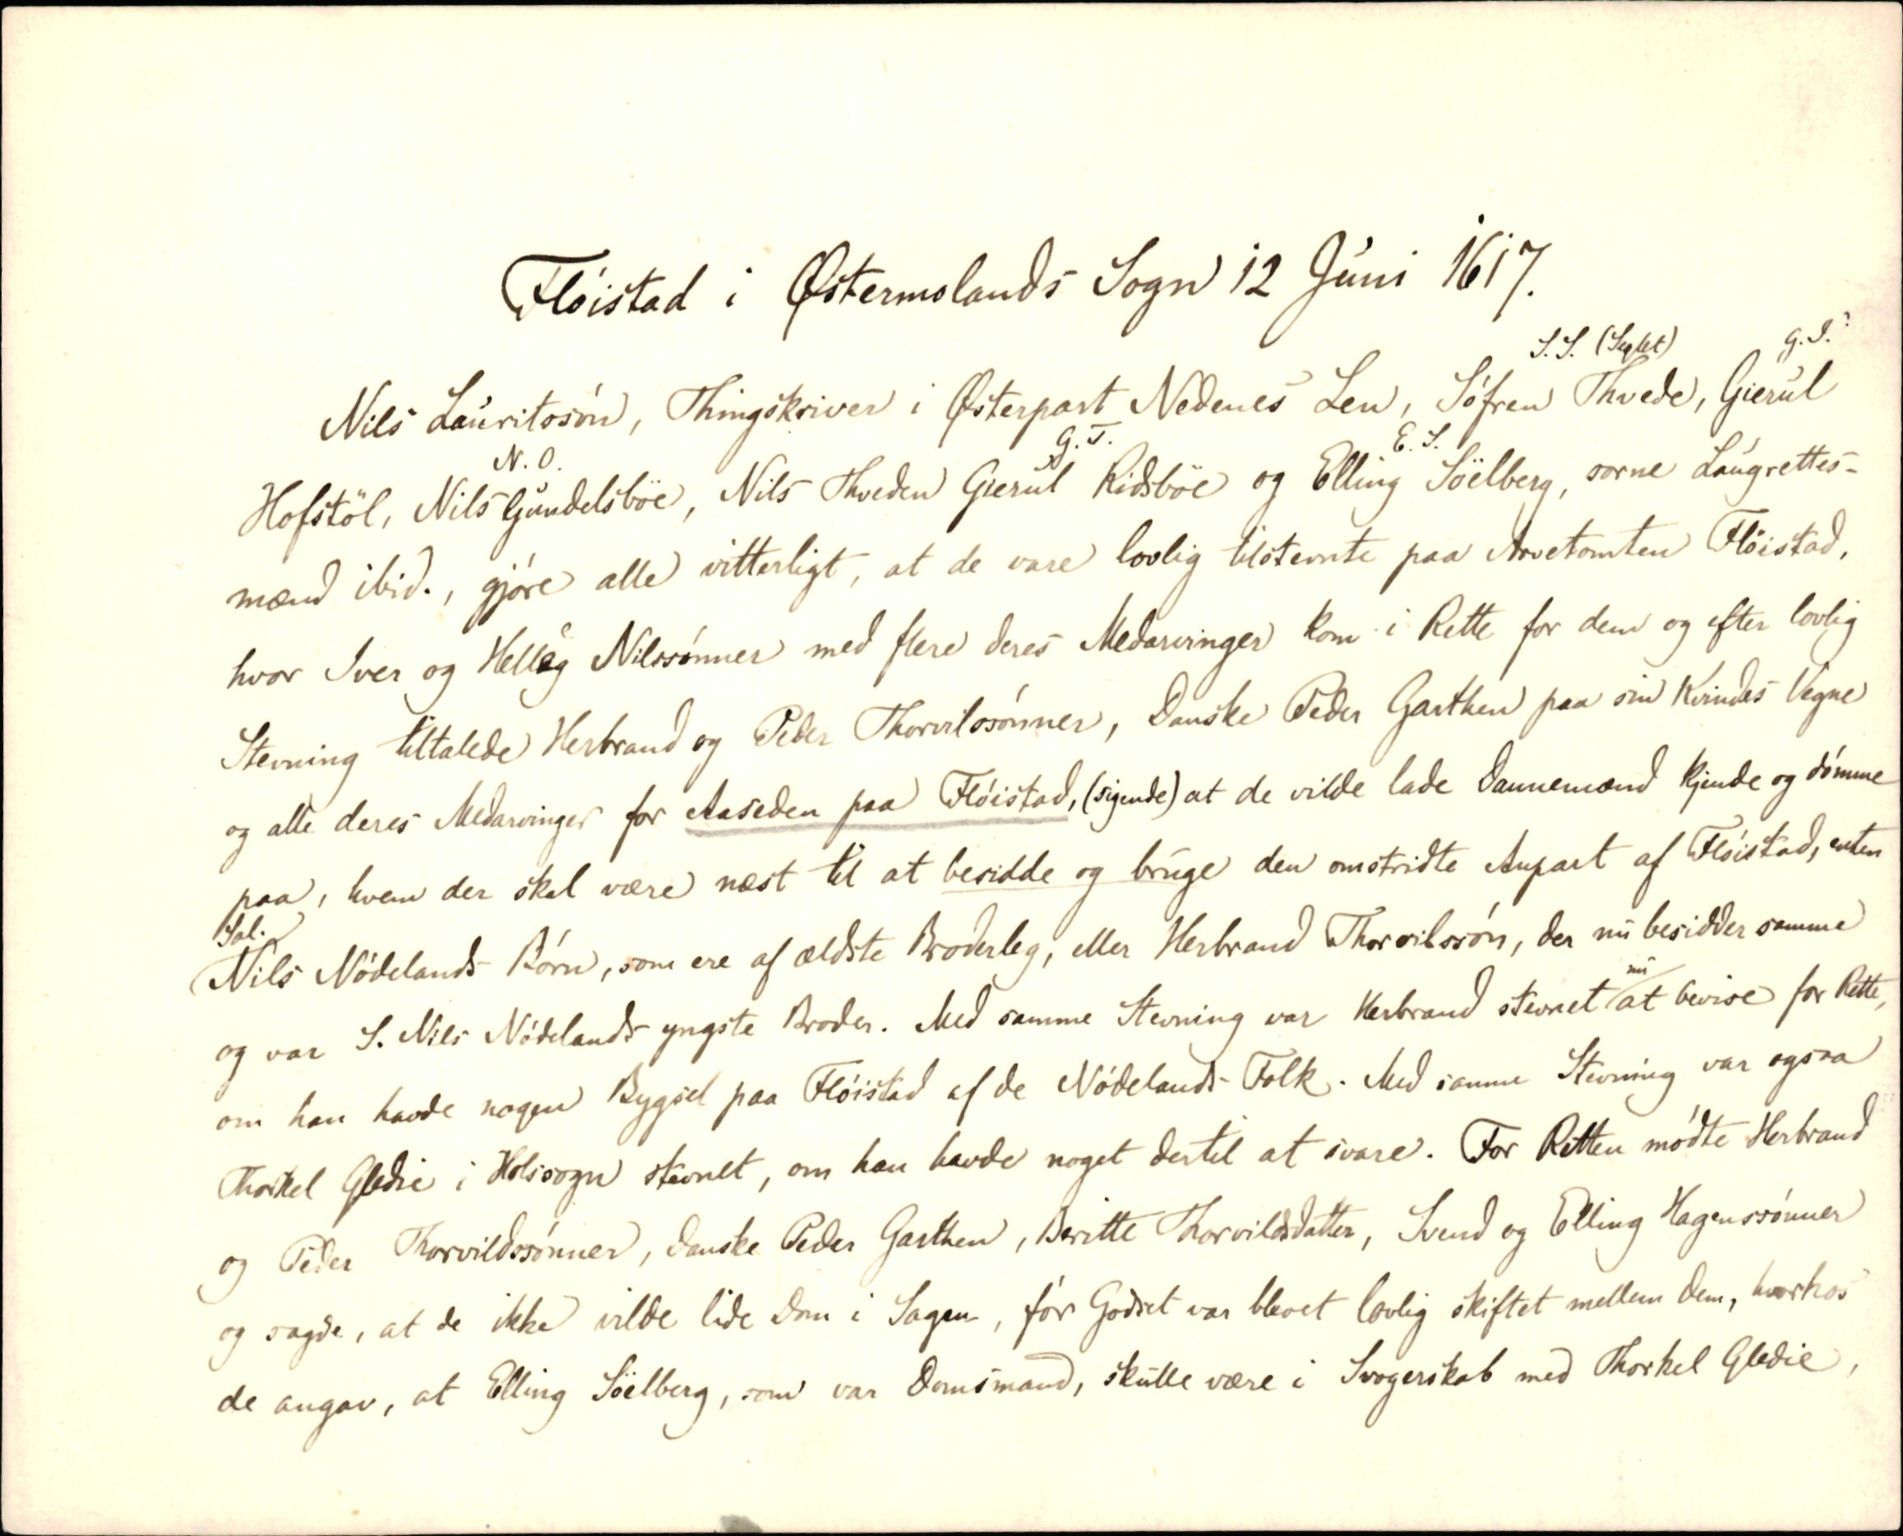 Flöistad i Østermolands Sogn 12 Juni 1617.
S.S. (Seglet) G.I.?
Nils Lauritssön, Thingskriver i Østerpart Nedenes Len, Söfren Thvede, Gierul
N.O. G.T. E.S.
Hofstöl, Nils Gundelsböe, Nils Thveden Gierul Ridsböe og Elling Söelberg, sorne Laugrettes-
mænd ibid., gjöre alle vitterligt, at de vare lovlig tilstevnte paa Arvetomten Flöistad,
hvor Iver og Helleg Nilssönner med flere deres Medarvinger kom i Rette for dem og efter lovlig
Stevning tiltalede Herbrand og Peder Thorvilssönner, Danske Peder Garthen paa sin Kvindes Vegne
og alle deres Medarvinger for Aaseden paa Flöistad, (sigende) at de vilde lade Dannemænd kjende og dömme
paa, hvem der skal være næst til at besidde og bruge den omstridte Anpart af Flöistad, enten
Sal.
Nils Nödelands Börn, som ere af ældste Broderleg, eller Herbrand Thorvilssön, der nu besidder samme
og var S. Nils Nödelands yngste Broder. Med samme Stevning var Herbrand stevnet nu at bevise for Rette,
om han havde nogen Bygsel paa Flöistad af de Nödelands Folk. Med samme Stevning var ogsaa
Thorkel Gledie i Holssogn stevnet, om han havde noget dertil at svare. For Retten mödte Herbrand
og Peder Thorvildssönner, Danske Peder Garthen, Beritte Thorvildsdatter, Svend og Elling Hagenssönner
og sagde, at de ikke vilde lide Dom i Sagen, för Godset var blevet lovlig skiftet mellem dem, hvorhos
de angav, at Elling Söelberg, som var Domsmand, skulle være i Svogerskab med Thorkel Gledie,